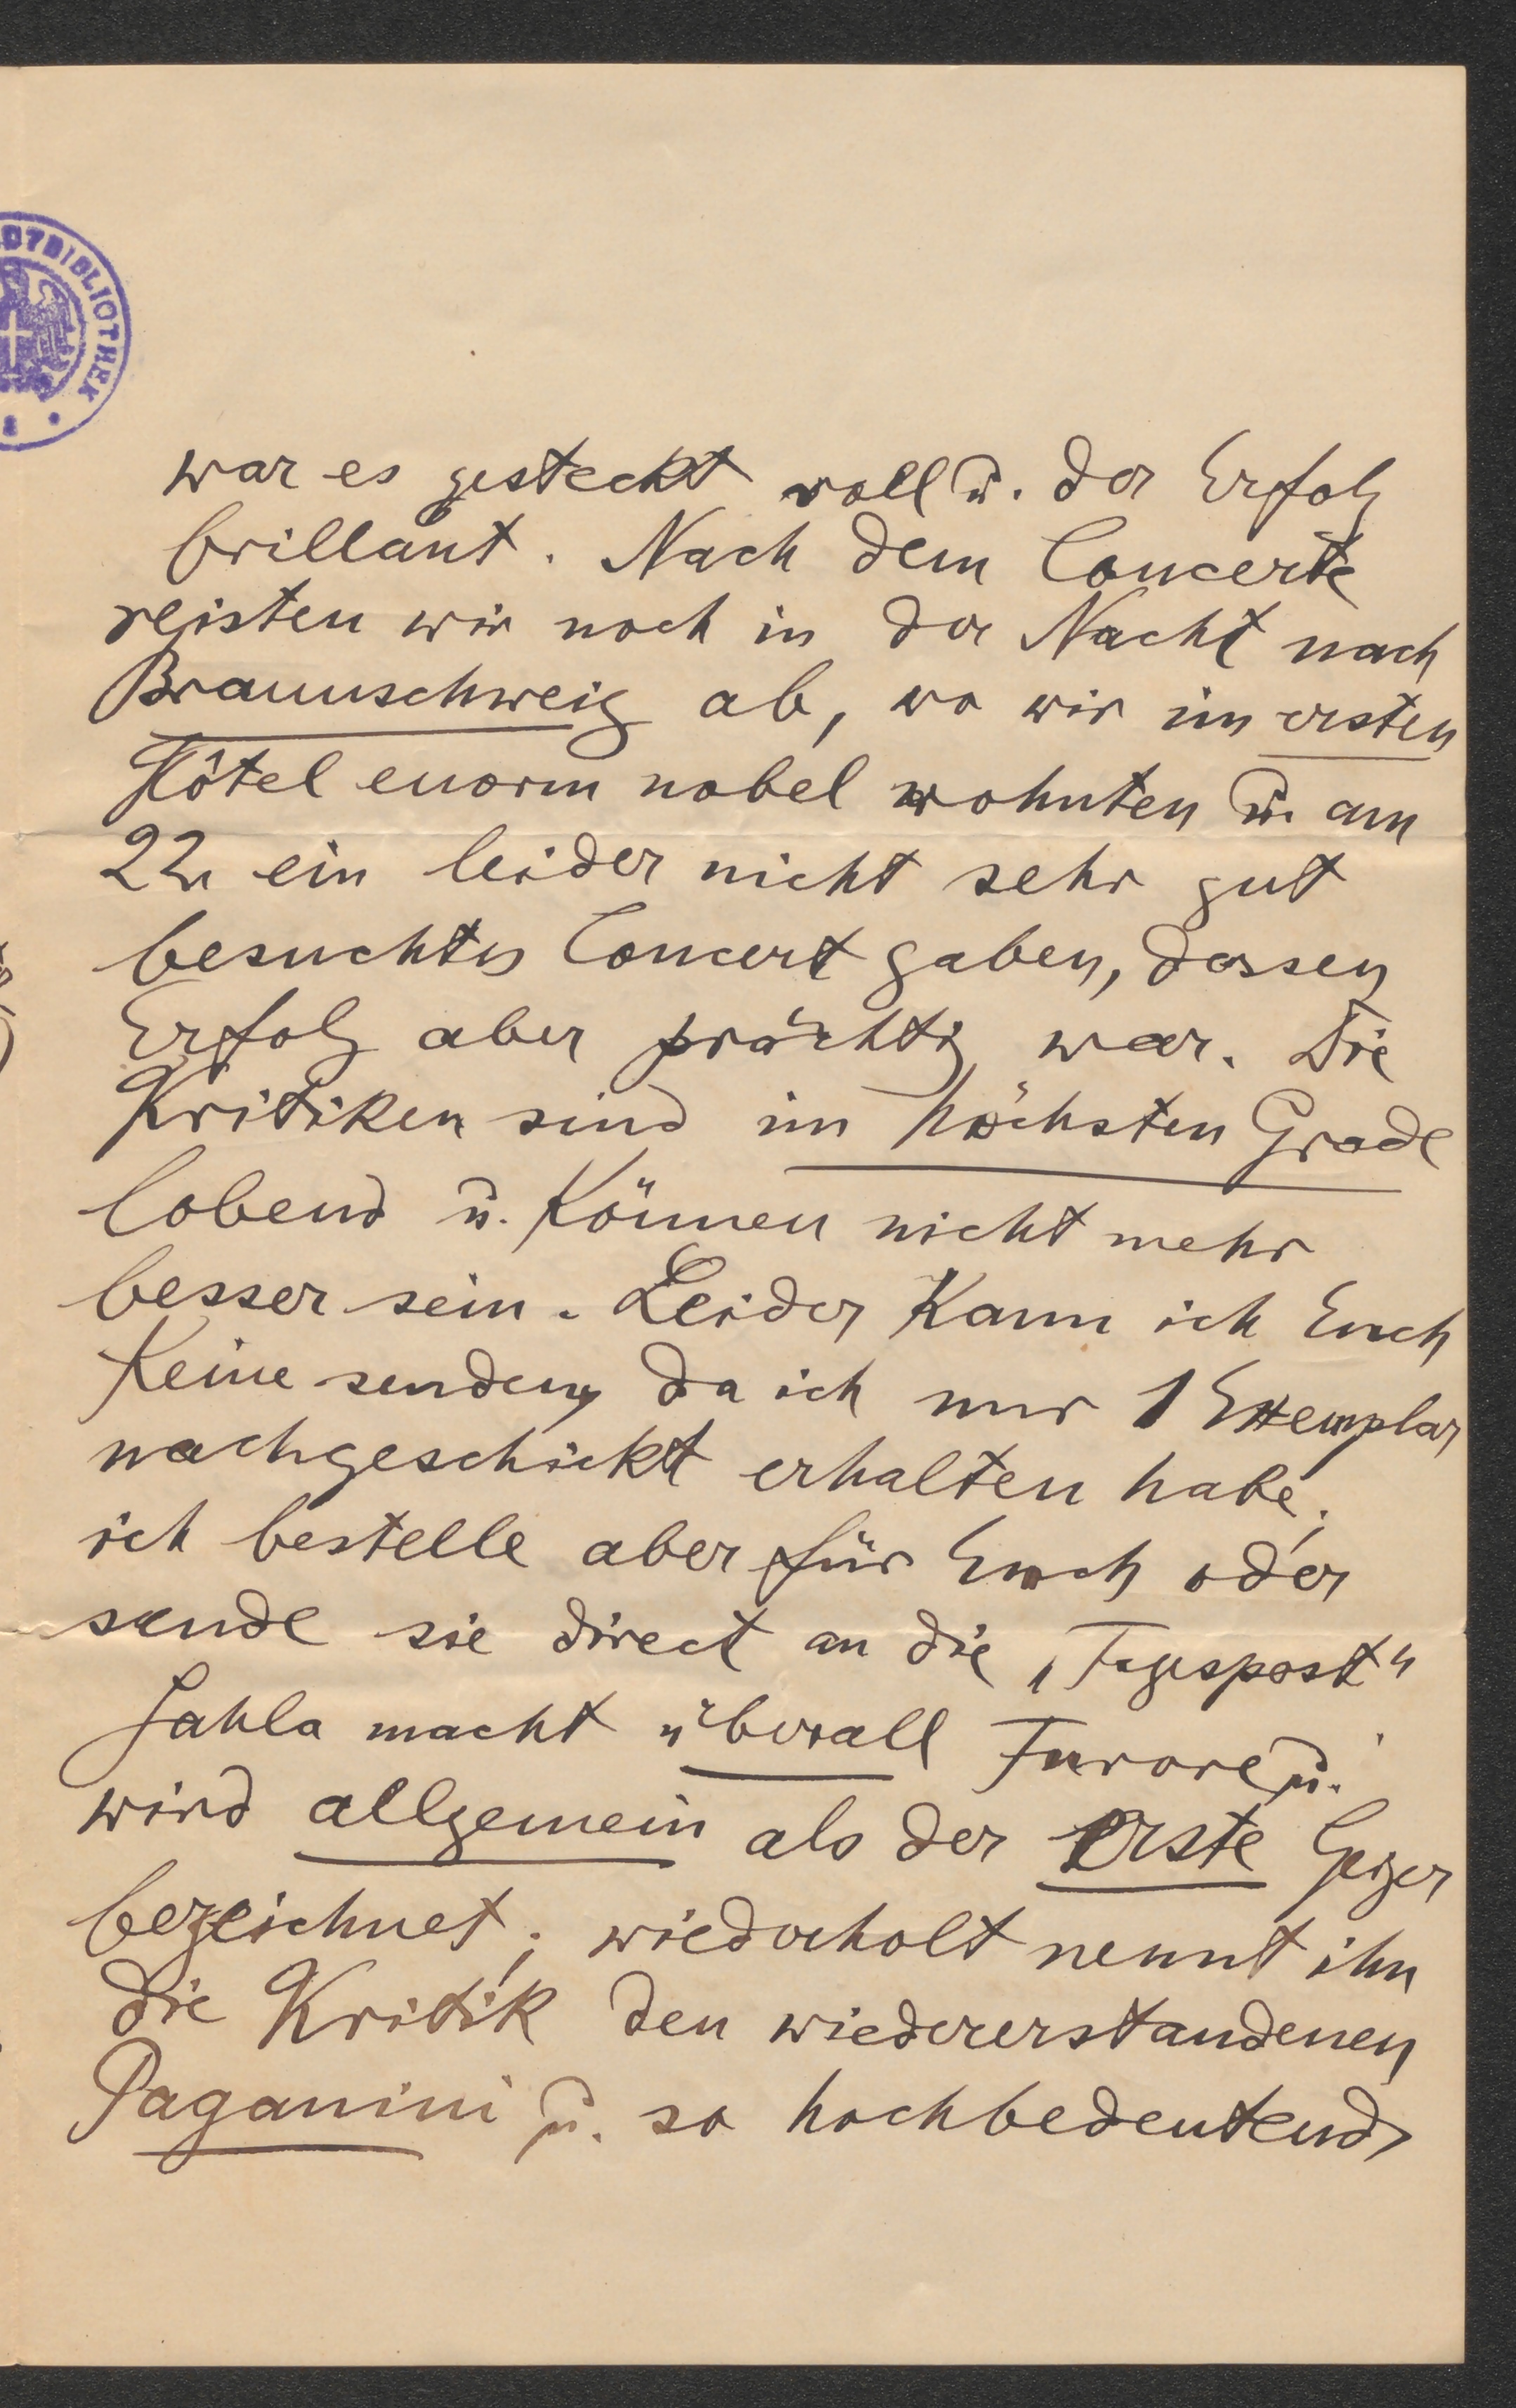 BIBLIOTHEK
war es gesteckt voll u. der Erfolg
brillant. Nach dem Concerte
reisten wir noch in der Nacht nach
Braunschweig ab, wo wir im ersten
Hôtel enorm nobel wohnten u. am
22n ein leider nicht sehr gut
besuchtes Concert gaben, dessen
Erfolg aber prächtig war. Die
Kritiken sind im höchsten Grade
lobend u. können nicht mehr
besser sein. Leider kann ich Euch
keine senden, da ich nur 1 Exemplar
nachgeschickt erhalten habe;
ich bestelle aber für Euch oder
sende sie direct an die „Tagespost“.
Sahla macht überall Furore u.
wird allgemein als der erste Geiger
bezeichnet; wiederholt nennt ihn
die Kritik den wiedererstandenen
Paganini u. so hochbedeutend,